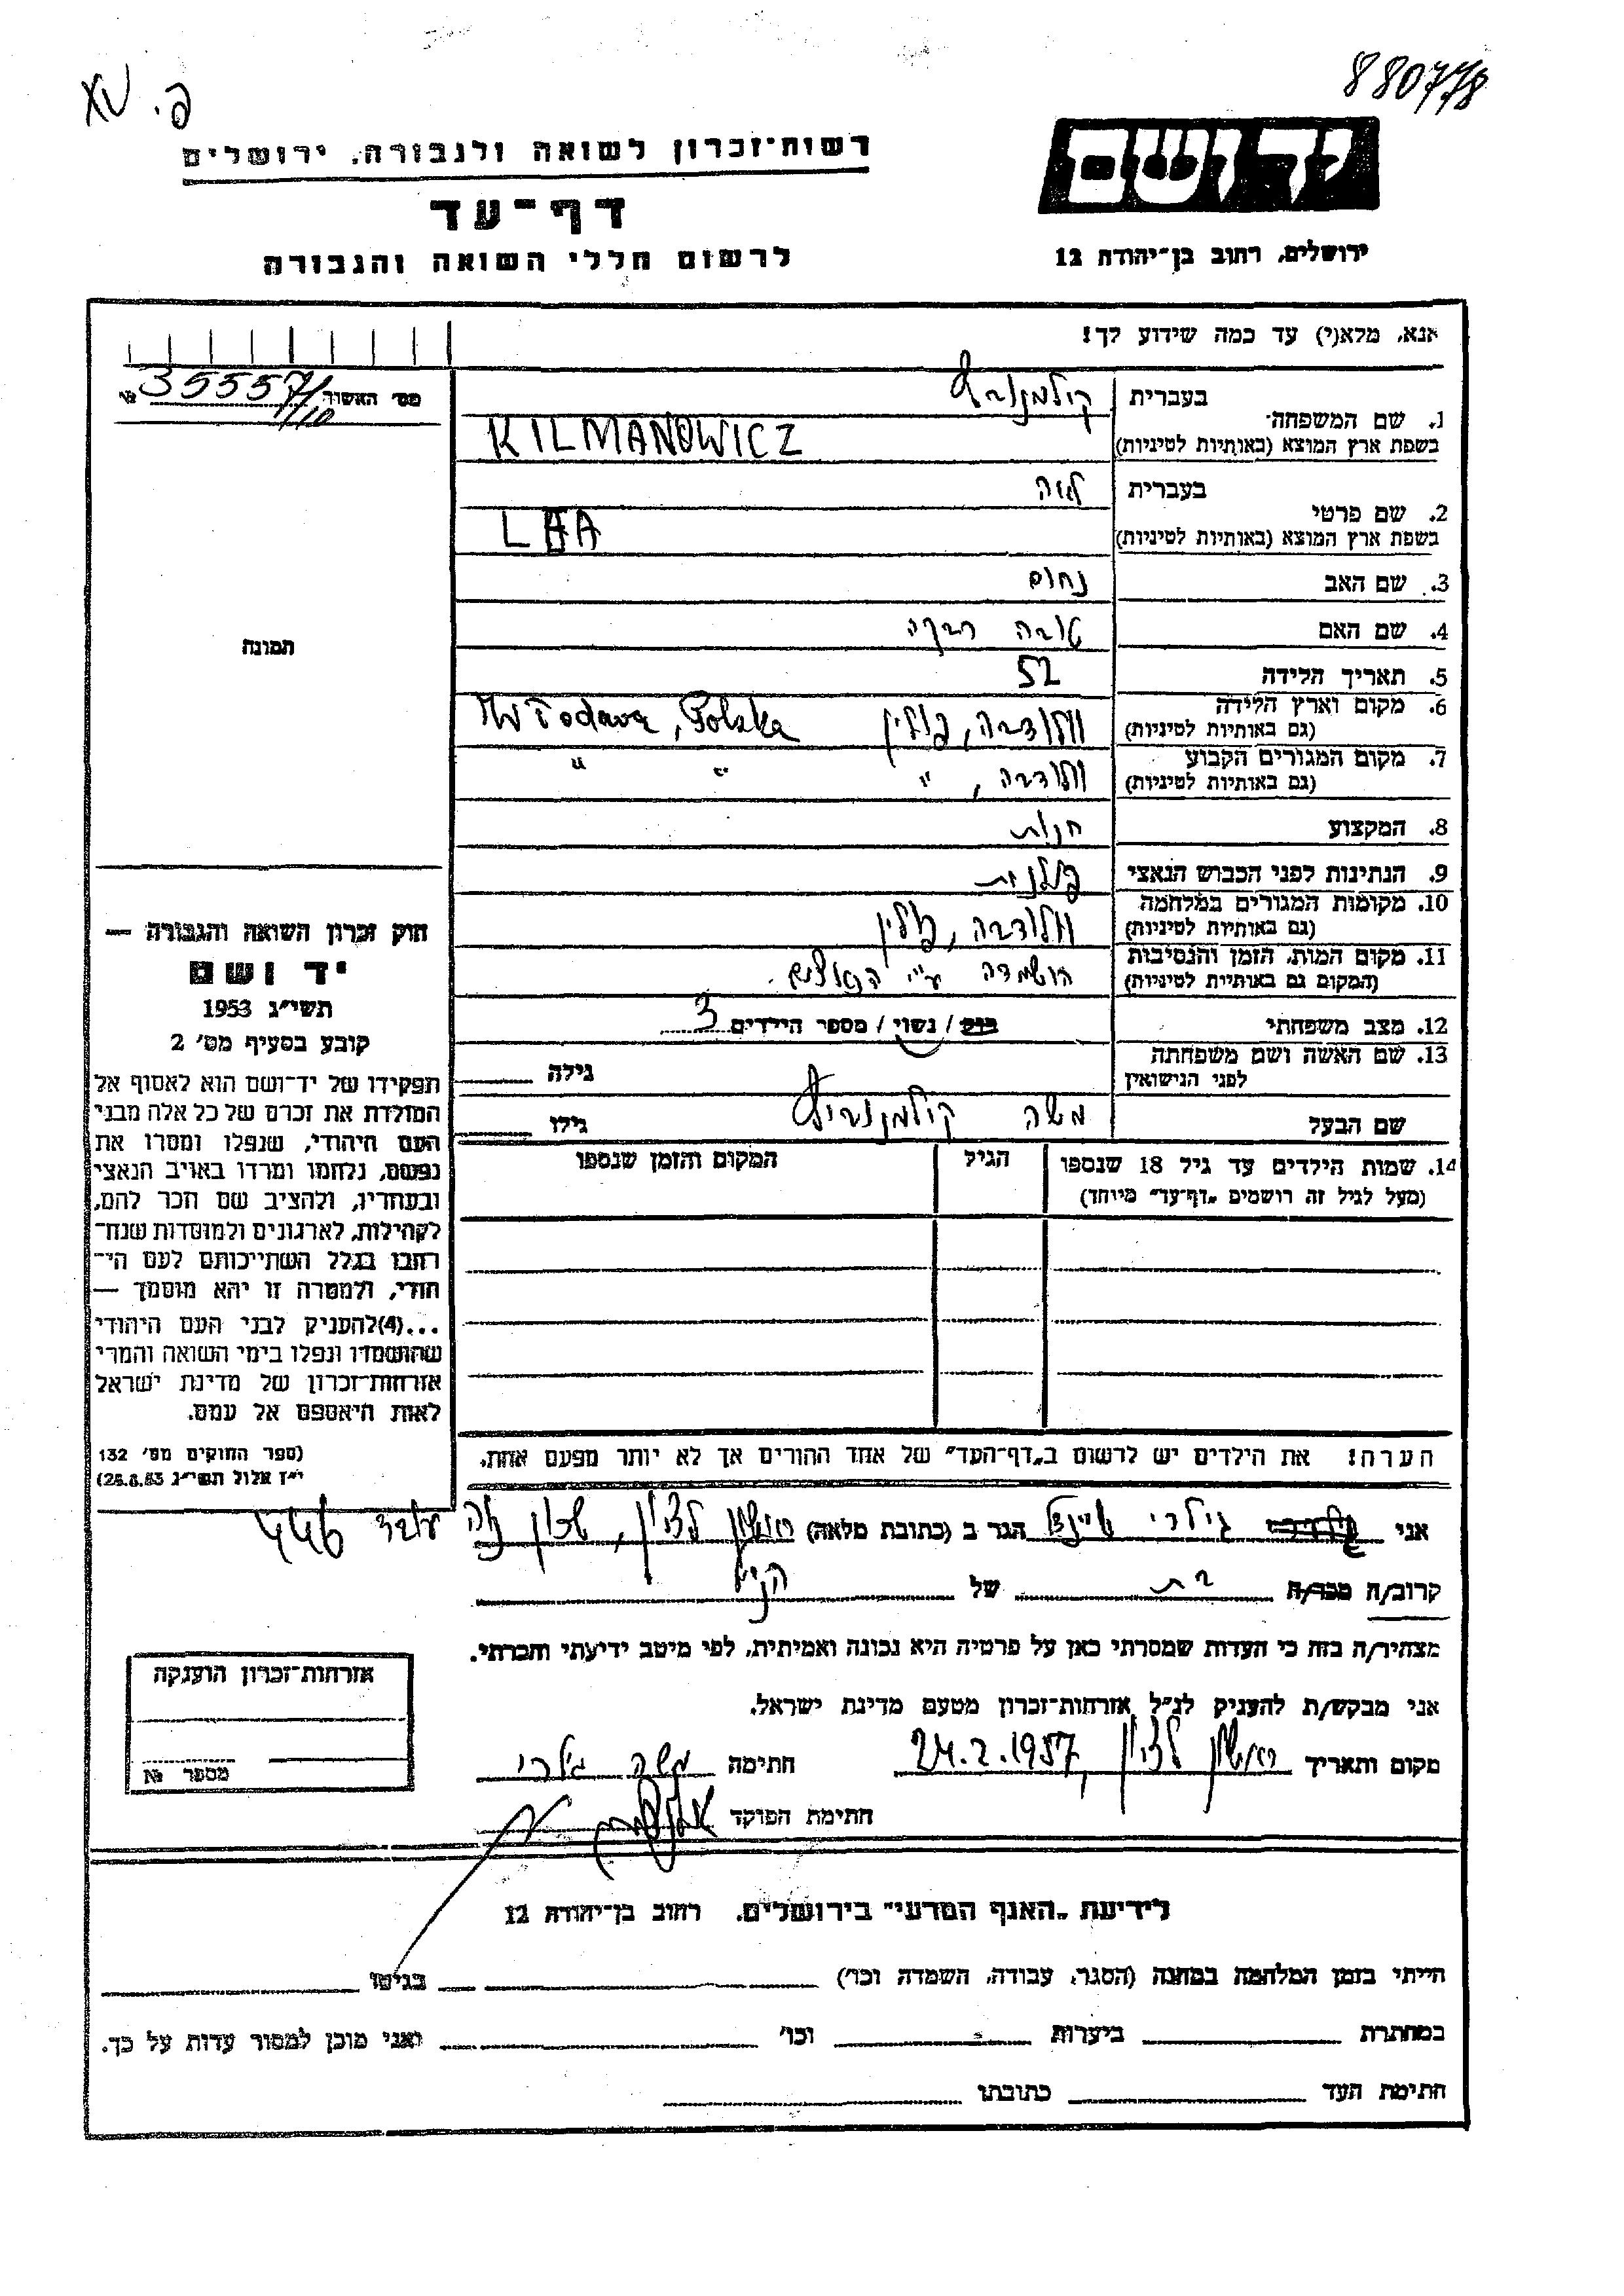 880778
פ. XV
יד ושם
רשות־זכרון לשואה ולגבורה, ירושלים
דף־עד
לרשום חללי השואה והגבורה
ירושלים, רחוב בן־יהודה 12
אנא, מלא(י) עד כמה שידוע לך!
מס׳ האשור № 35557/1/10
1. שם המשפחה
בעברית
בשפת ארץ המוצא (באותיות לטיניות) KILMANOWICZ
2. שם פרטי
בעברית לאה
בשפת ארץ המוצא (באותיות לטיניות) LEA
3. שם האב נחום
4. שם האם טובה רבקה
5. תאריך הלידה 52
6. מקום וארץ הלידה (גם באותיות לטיניות) וולודבה, פולין Włodawa, Polska
7. מקום המגורים הקבוע (גם באותיות לטיניות) וולודבה, " " "
8. המקצוע חנות
9. הנתינות לפני הכבוש הנאצי פולנית
10. מקומות המגורים במלחמה (גם באותיות לטיניות) וולודבה, פולין
11. מקום המות, הזמן והנסיבות (המקום גם באותיות לטיניות) הושמדה ע"י הנאצים.
12. מצב משפחתי רווק / נשוי / מספר הילדים 3
13. שם האשה ושם משפחתה לפני הנישואין גילה
שם הבעל משה קילמנוביץ גילו
14. שמות הילדים עד גיל 18 שנספו (מעל לגיל זה רושמים „דף־עד" מיוחד)
הגיל
המקום והזמן שנספו
תמונה
חוק זכרון השואה והגבורה —
יד ושם
תשי״ג 1953
קובע בסעיף מס׳ 2
תפקידו של יד־ושם הוא לאסוף אל
המולדת את זכרם של כל אלה מבני
העם היהודי, שנפלו ומסרו את
נפשם, נלחמו ומרדו באויב הנאצי
ובעוזריו, ולהציב שם וזכר להם,
לקהילות, לארגונים ולמוסדות שנח־
רבו בגלל השתייכותם לעם הי־
הודי, ולמטרה זו יהא מוסמך —
...(4)להעניק לבני העם היהודי
שהושמדו ונפלו בימי השואה והמרי
אזרחות־זכרון של מדינת ישראל
לאות היאספם אל עמם.
(ספר החוקים מס׳ 132
י״ז אלול תשי״ג 28.8.53)
הערה! את הילדים יש לרשום ב„דף־העד" של אחד ההורים אך לא יותר מפעם אחת.
אני גילרי הגר ב (כתובת מלאה) ראשון לציון, שכון עובד 446
קרוב/ה מכר/ה בת של הנ"ל
מצהיר/ה בזה כי העדות שמסרתי כאן על פרטיה היא נכונה ואמיתית, לפי מיטב ידיעתי והכרתי.
אני מבקש/ת להעניק לנ״ל אזרחות־זכרון מטעם מדינת ישראל.
מקום ותאריך ראשון לציון, 24.2.1957 חתימה משה גילרי
חתימת הפוקד
אזרחות־זכרון הוענקה
מספר №
לידיעת „האגף המדעי" בירושלים. רחוב בן־יהודה 12
הייתי בזמן המלחמה במחנה (הסגר, עבודה, השמדה וכו׳) בגיטו
במחתרת ביערות וכו׳ ואני מוכן למסור עדות על כך.
חתימת העד כתובתו